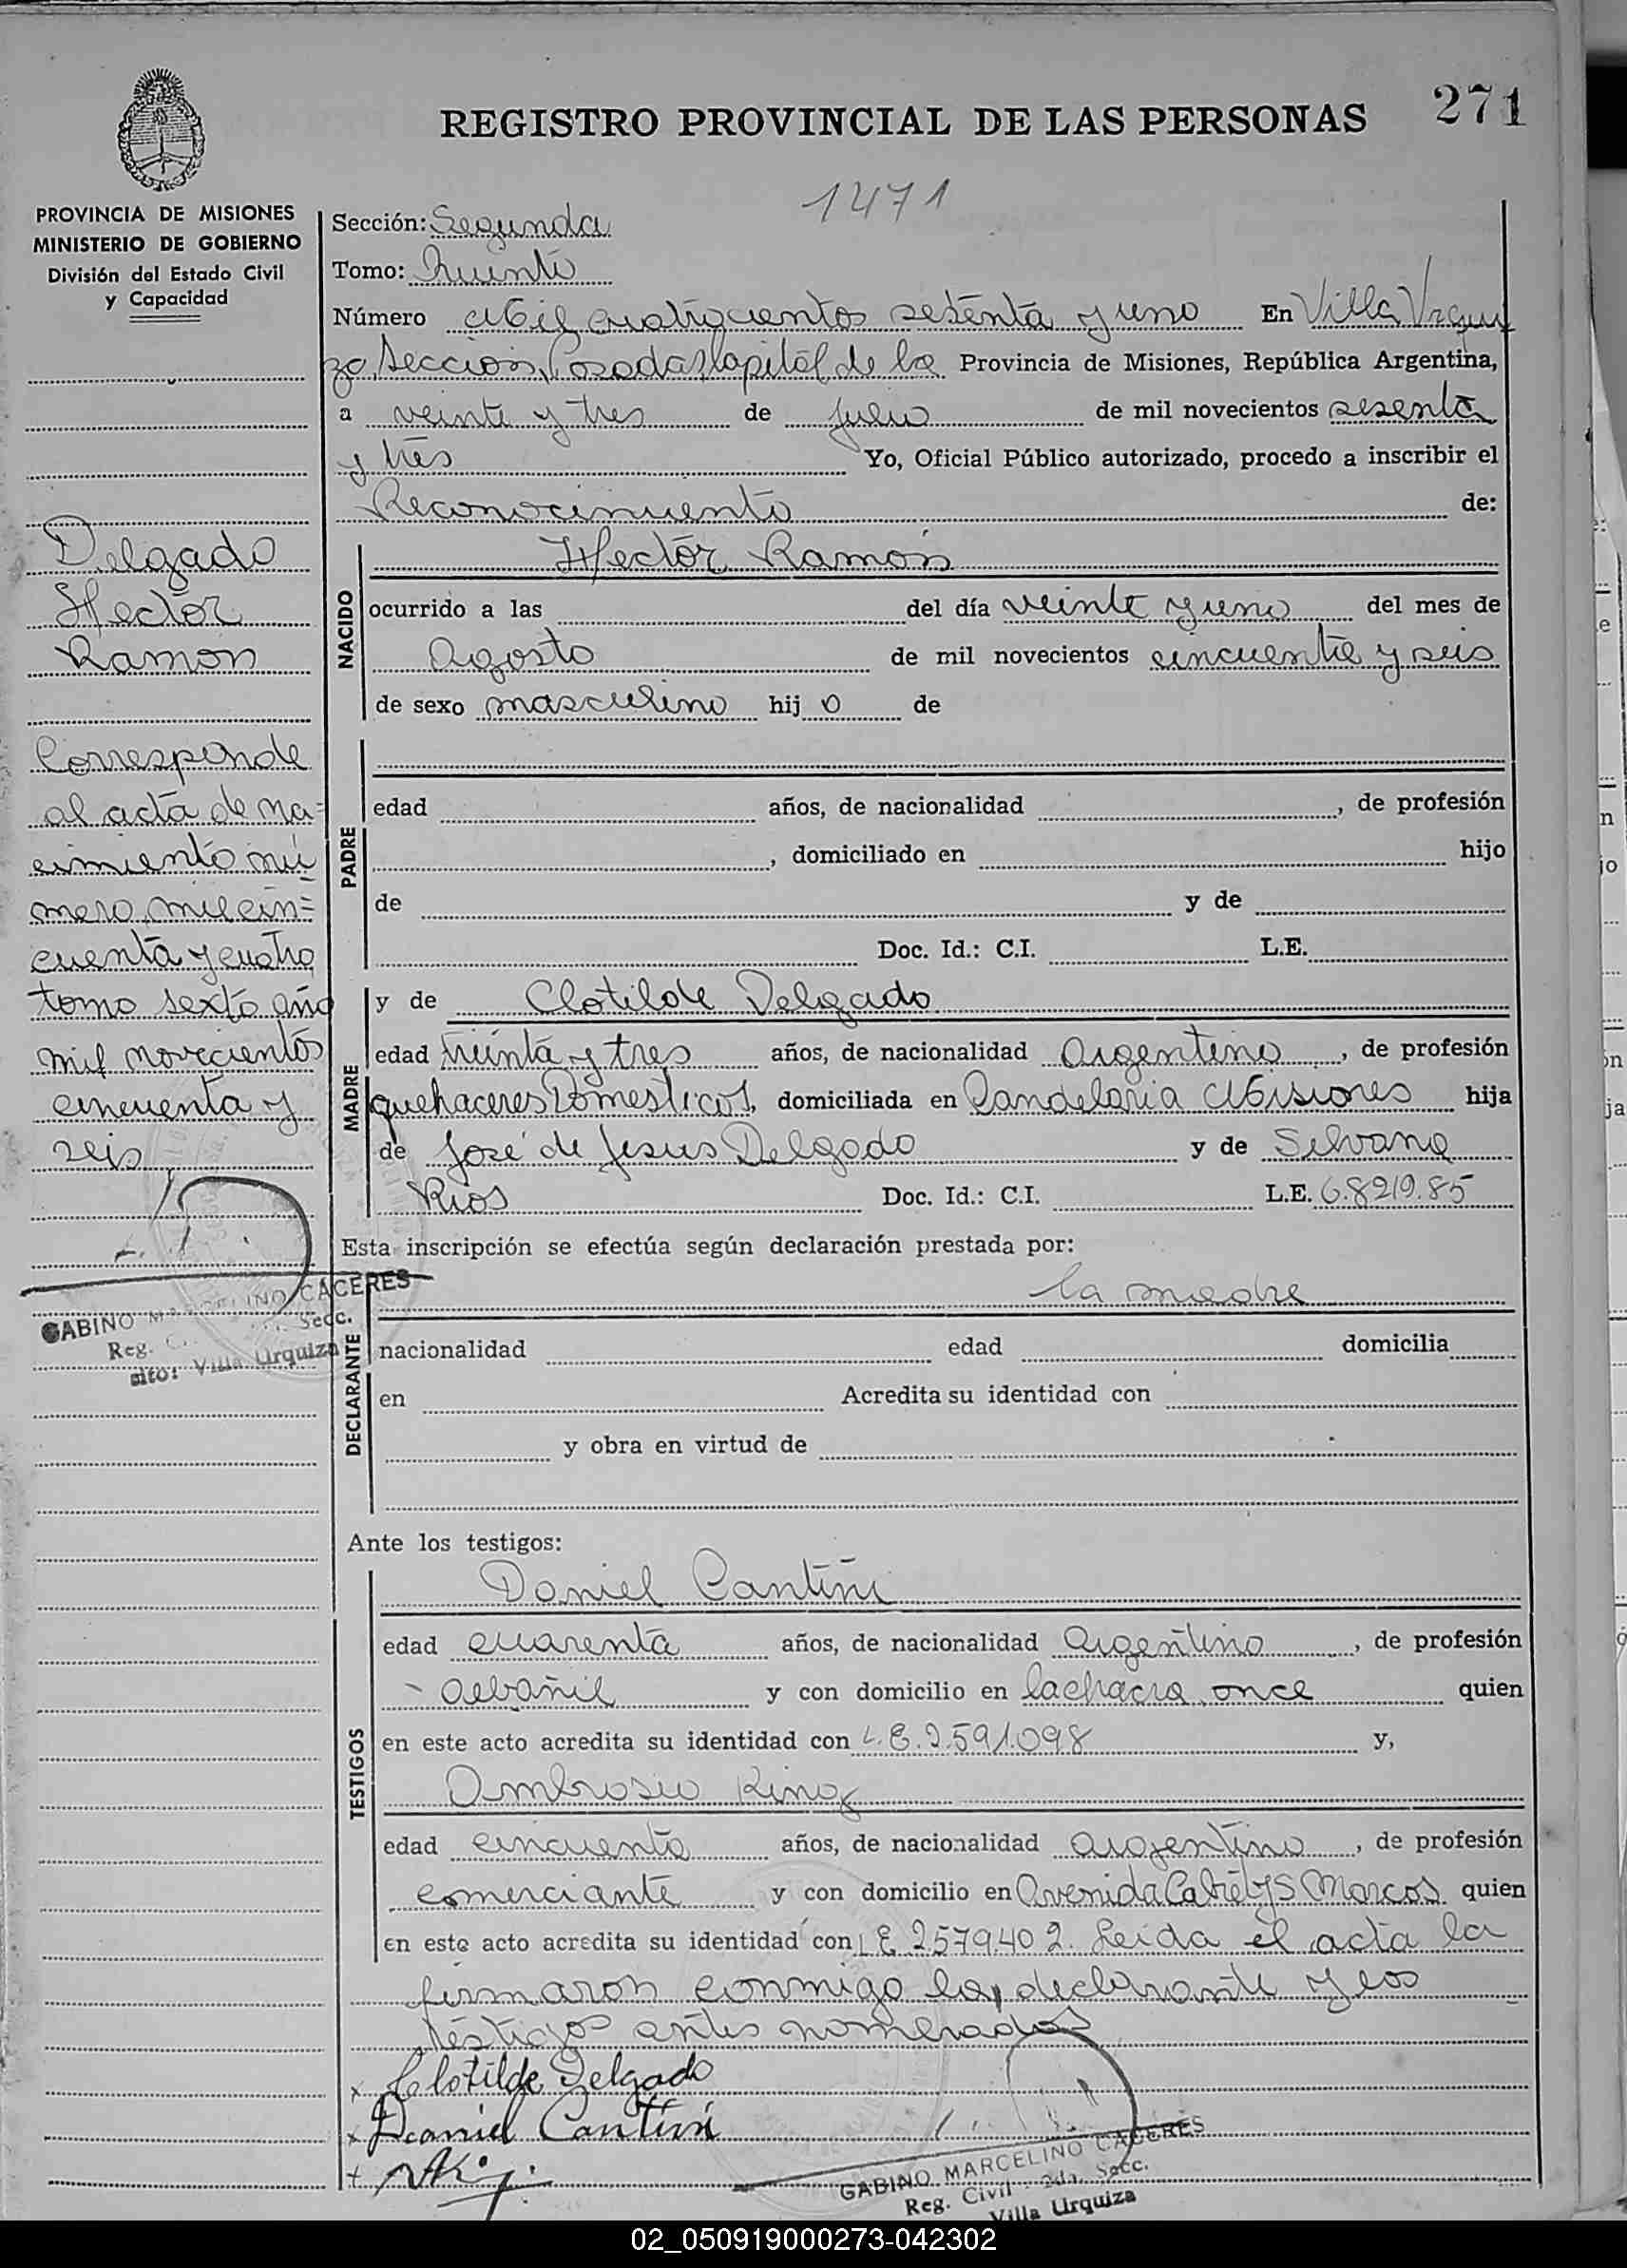 271
REGISTRO PROVINCIAL DE LAS PERSONAS
1471
PROVINCIA DE MISIONES
MINISTERIO DE GOBIERNO
División del Estado Civil
y Capacidad
Delgado
Hector
Ramon
Corresponde
al acta de na=
cimiento nú
mero mil cin=
cuenta y cuatro
tomo sexto año
mil novecientos
cincuenta y
seis
GABINO MARCELINO CACERES
Reg. Secc.
Villa Urquiza
Sección: Segunda
Tomo: Quinto
Número Mil cuatrocientos setenta y uno En Villa Urqui
za, Seccion, Posadas Capital de la Provincia de Misiones, República Argentina,
a veinte y tres de julio de mil novecientos sesenta
y tres Yo, Oficial Público autorizado, procedo a inscribir el
Reconocimiento de:
NACIDO
Hector Ramon
ocurrido a las del día veinte y uno del mes de
Agosto de mil novecientos cincuenta y seis
de sexo masculino hij o de
PADRE
edad años, de nacionalidad , de profesión
, domiciliado en hijo
de y de
Doc. Id.: C.I. L.E.
MADRE
y de Clotilde Delgado
edad treinta y tres años, de nacionalidad Argentina, de profesión
quehaceres Domesticos, domiciliada en Candelaria Misiones hija
de José de Jesus Delgado y de Silvana
Rios Doc. Id.: C.I. L.E. 6.821.985
Esta inscripción se efectúa según declaración prestada por:
DECLARANTE
la madre
nacionalidad edad domicilia
en Acredita su identidad con
y obra en virtud de
Ante los testigos:
TESTIGOS
Daniel Cantini
edad cuarenta años, de nacionalidad Argentino, de profesión
- Albañil y con domicilio en la chacra once quien
en este acto acredita su identidad con L.E. 2.591.098 y,
Ambrosio
edad cincuenta años, de nacionalidad argentino, de profesión
comerciante y con domicilio en Avenida quien
en este acto acredita su identidad con L E 2579.402. Leida el acta la
firmaron conmigo la declarante y los
testigos antes nombrados
x Clotilde Delgado
x Daniel Cantini
GABINO MARCELINO CACERES
Reg. Civil 2da. Secc.
Villa Urquiza
02_050919000273-042302